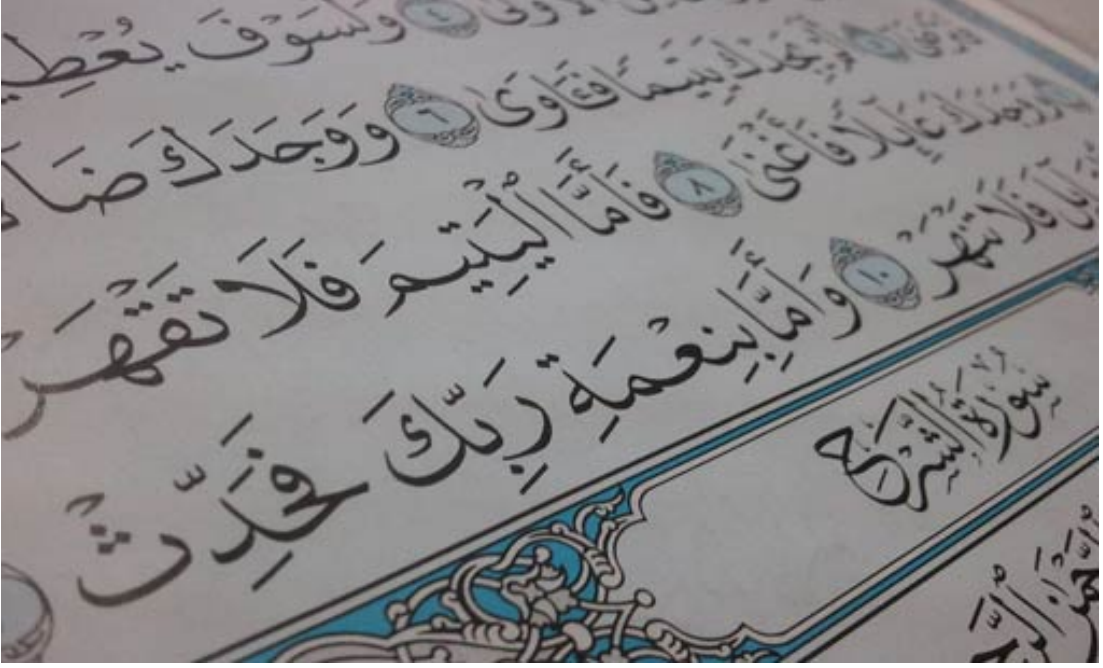 ٱلْأُولَىٰ ٤ وَلَسَوْفَ
أَلَمْ يَجِدْكَ يَتِيمًا فَـَٔاوَىٰ ٦ وَوَجَدَكَ
وَوَجَدَكَ عَآئِلًا فَأَغْنَىٰ ٨ فَأَمَّا ٱلْيَتِيمَ فَلَا تَقْهَرْ
فَلَا تَنْهَرْ ١٠ وَأَمَّا بِنِعْمَةِ رَبِّكَ فَحَدِّثْ
سُورَةُ الشَّرْحِ